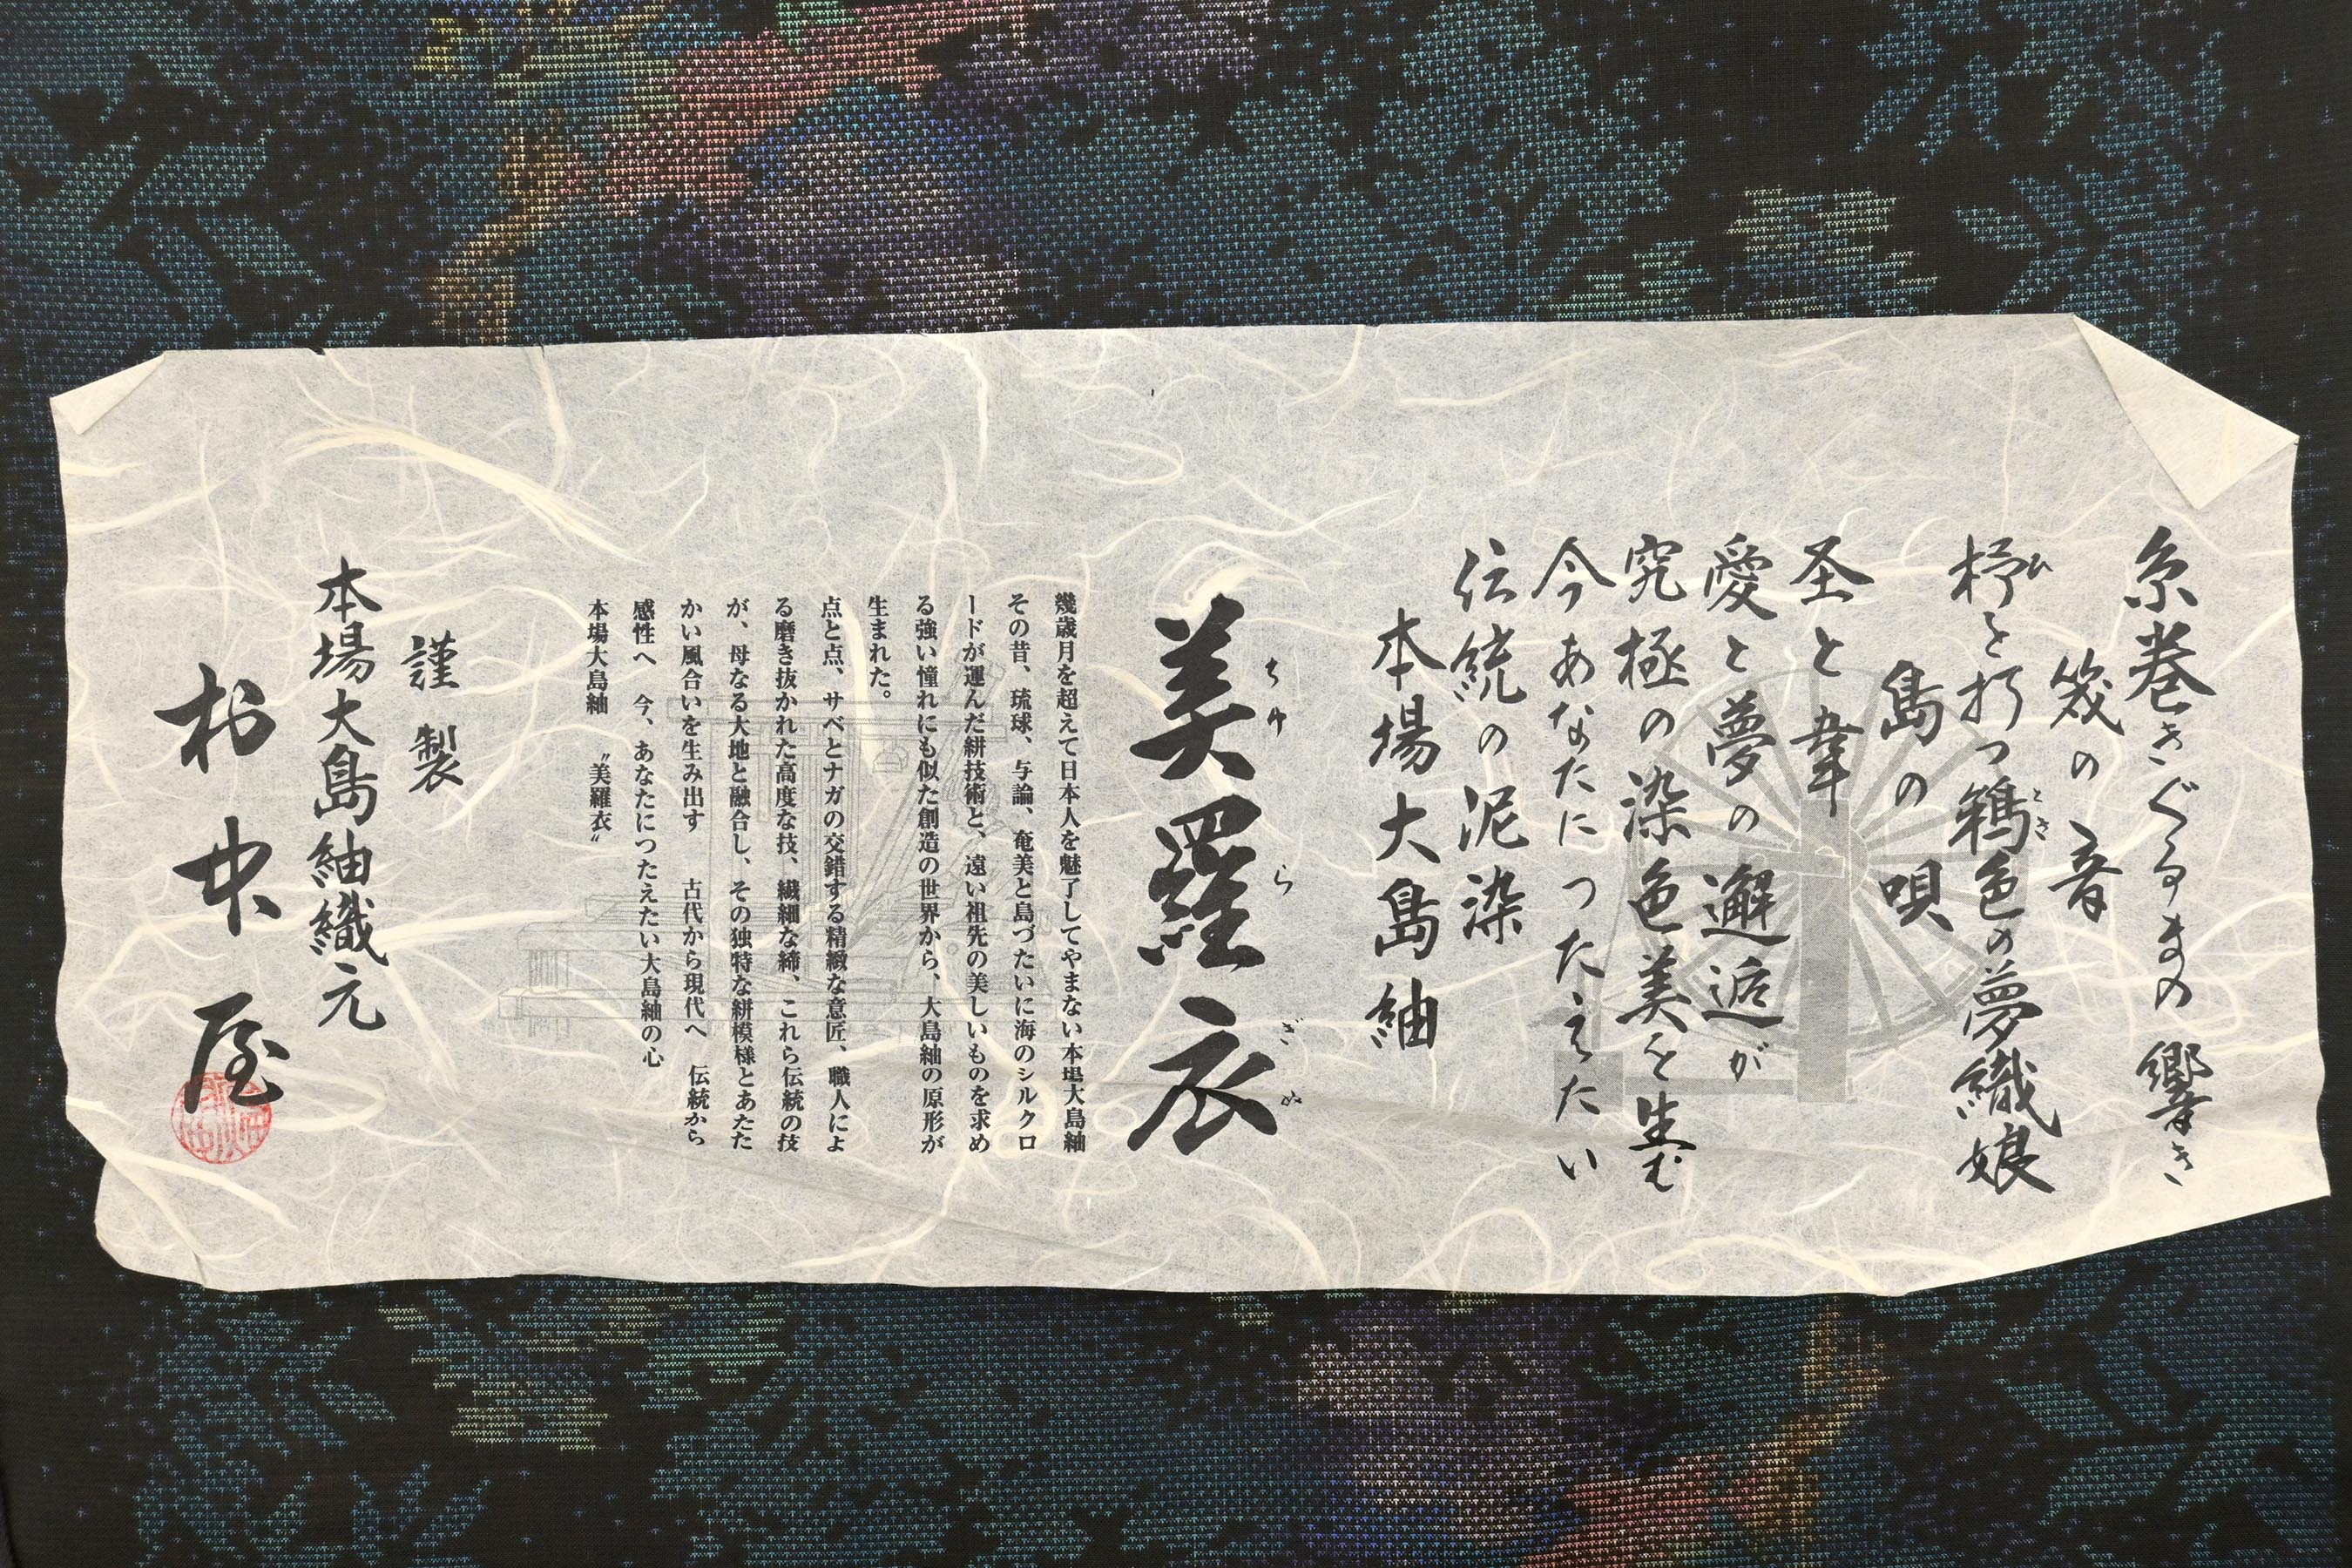 糸巻きぐるまの響き
筬の音
杼を打つ鴇色の夢織娘
ひ
とき
島の唄
圣と韋
愛と夢の邂逅が
究極の染色美を生む
今あなたにつたえたい
伝統の泥染
本場大島紬
美羅衣
ちゅ
ら
ぎぬ
幾歳月を超えて日本人を魅了してやまない本場大島紬
その昔、琉球、与論、奄美と島づたいに海のシルクロ
ードが運んだ絣技術と、遠い祖先の美しいものを求め
る強い憧れにも似た創造の世界から、大島紬の原形が
生まれた。
点と点、サベとナガの交錯する精緻な意匠、職人によ
る磨き抜かれた高度な技、繊細な締、これら伝統の技
が、母なる大地と融合し、その独特な絣模様とあたた
かい風合いを生み出す 古代から現代へ 伝統から
感性へ 今、あなたにつたえたい大島紬の心
本場大島紬 〝美羅衣〟
謹製
本場大島紬織元
屋